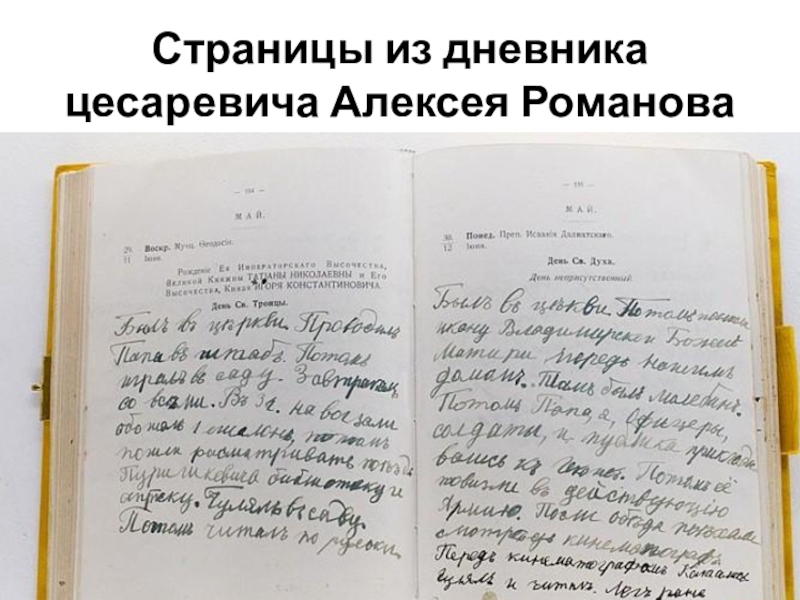 Страницы из дневника
цесаревича Алексея Романова
— 194 —
МАЙ.
29. Воскр. Мучц. Ѳеодосіи.
11 Іюня.
Рожденіе Ея Императорскаго Высочества,
Великой Княжны ТАТІАНЫ НИКОЛАЕВНЫ и Его
Высочества, Князя ИГОРЯ КОНСТАНТИНОВИЧА.
День Св. Троицы.
Былъ въ церкви. Проводилъ
Папа въ штабъ. Потомъ
игралъ въ саду. Завтракалъ
со всѣми. Въ 3 ч. на вокзали
обо 1 эшалона, потомъ
пошли расматривать поѣздъ
Пуришкевича библиотеку и
аптеку. Гулялъ въ саду.
Потомъ читалъ по русски.
— 195 —
МАЙ.
30. Понед. Преп. Исаакія Далматскаго.
12 Іюня.
День Св. Духа.
День неприсутственный.
Былъ въ церкви. Потомъ
икону Владимирской Божией
Матири передъ нашимъ
домомъ. Тамъ былъ молебенъ.
Потомъ Папа, а, Офицеры,
солдаты, и публика приклады
вались къ ней. Потомъ её
повезли въ действующию
Армию. После обѣда поехали
смотреть кинематографъ
Передъ кинематографомъ Катался
Гулялъ и читалъ. Легъ рано